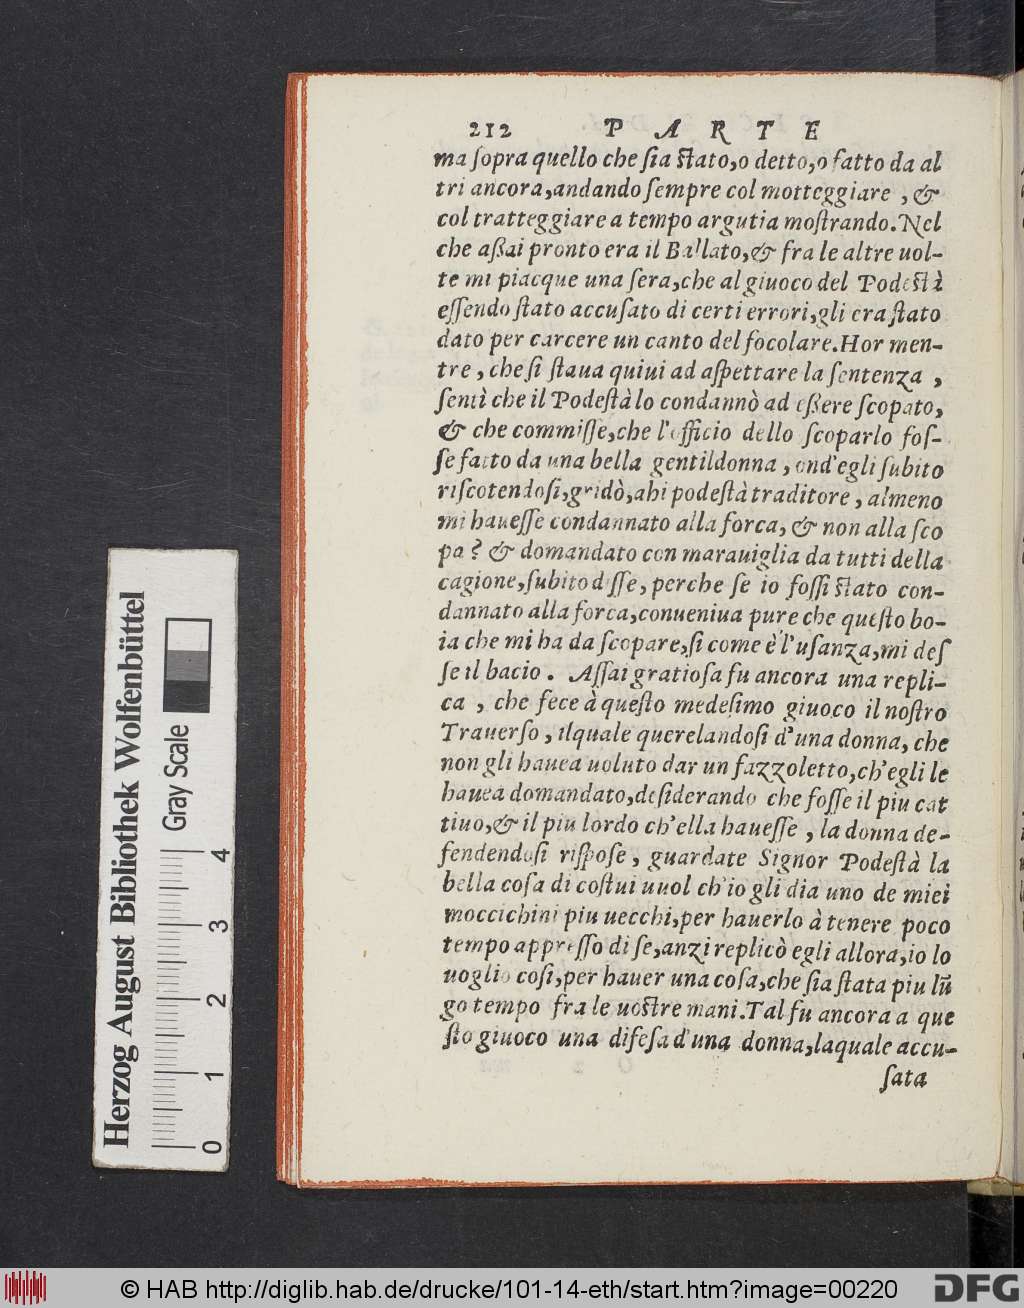 212 PARTE
ma ſopra quello che ſia ſtato, o detto, o fatto da al
tri ancora, andando ſempre col motteggiare, &
col tratteggiare a tempo argutia moſtrando. Nel
che aßai pronto era il Ballato, & fra le altre uol-
te mi piacque una ſera, che al giuoco del Podeſtà
eſſendo ſtato accuſato di certi errori, gli era ſtato
dato per carcere un canto del focolare. Hor men-
tre, che ſi ſtaua quiui ad aſpettare la ſentenza,
ſentì che il Podeſtà lo condannò ad eßere ſcopato,
& che commiſſe, che l'officio dello ſcoparlo foſ-
ſe fatto da una bella gentildonna, ond'egli ſubito
riſcotendoſi, gridò, ahi podeſtà traditore, almeno
mi haueſſe condannato alla forca, & non alla ſco
pa? & domandato con marauiglia da tutti della
cagione, ſubito diſſe, perche ſe io foſſi ſtato con-
dannato alla forca, conueniua pure che queſto bo-
ia che mi ha da ſcopare, ſi come è l'uſanza, mi deſ
ſe il bacio. Aſſai gratioſa fu ancora una repli-
ca, che fece à queſto medeſimo giuoco il noſtro
Trauerſo, ilquale querelandoſi d'una donna, che
non gli hauea uoluto dar un fazzoletto, ch'egli le
hauea domandato, deſiderando che foſſe il piu cat
tiuo, & il piu lordo ch'ella haueſſe, la donna de-
fendendoſi riſpoſe, guardate Signor Podeſtà la
bella coſa di coſtui uuol ch'io gli dia uno de miei
moccichini piu uecchi, per hauerlo à tenere poco
tempo appreſſo di ſe, anzi replicò egli allora, io lo
uoglio coſi, per hauer una coſa, che ſia ſtata piu lū
go tempo fra le uoſtre mani. Tal fu ancora a que
ſto giuoco una difeſa d'una donna, laquale accu-
ſata
Herzog August Bibliothek Wolfenbüttel
Gray Scale
0 1 2 3 4
© HAB http://diglib.hab.de/drucke/101-14-eth/start.htm?image=00220
DFG